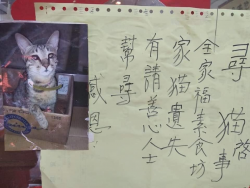 尋猫啓事
全家福素食坊
家猫遺失
有請善心人士
幫尋
感恩